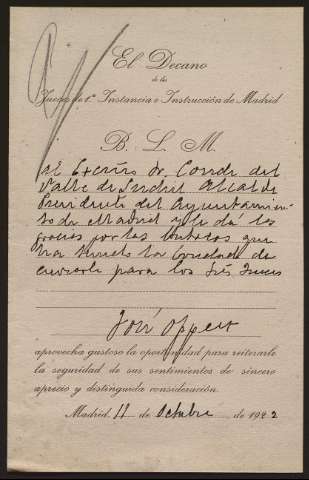 El Decano
de los
Jueces de 1ª Instancia e Instrucción de Madrid
B. L. M.
al Excmo Sr. Conde del
Valle de Suchil Alcalde
Presidente del Ayuntamien
to de Madrid y le da las
gracias por las butacas que
ha tenido la bondad de
enviarle para los Srs Jueces
José Oppelt
aprovecha gustoso la oportunidad para reiterarle
la seguridad de sus sentimientos de sincero
aprecio y distinguida consideración.
Madrid 11 de Octubre de 1922